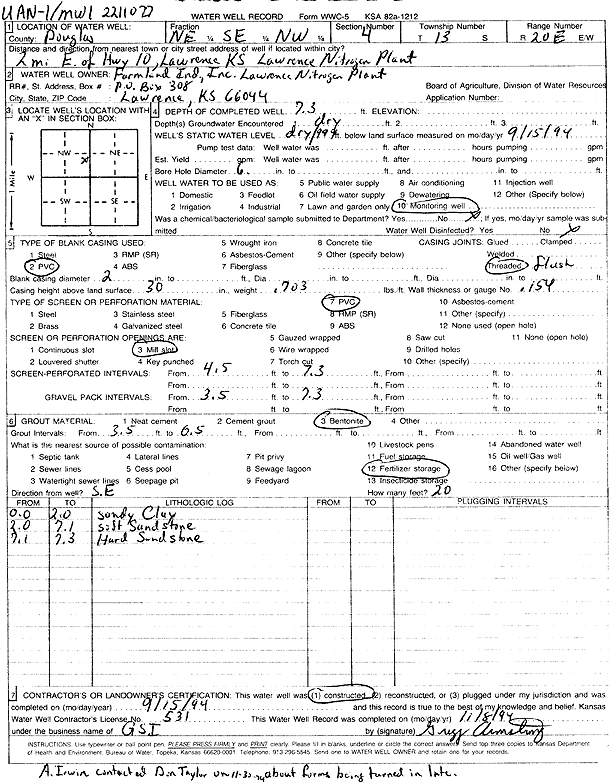 UAN-1/MW1 2211022 WATER WELL RECORD Form WWC-5 KSA 82a-1212
1 LOCATION OF WATER WELL: Fraction Section Number Township Number Range Number
County: Douglas NE ¼ SE ¼ NW ¼ 4 T 13 S R 20E E/W
Distance and direction from nearest town or city street address of well if located within city?
2mi E. of Hwy 10, Lawrence KS Lawrence Nitrogen Plant
2 WATER WELL OWNER: Farmland Ind, Inc. Lawrence Nitrogen Plant
RR#, St. Address, Box # : P.O. Box 308 Board of Agriculture, Division of Water Resources
City, State, ZIP Code : Lawrence, KS 66044 Application Number:
3 LOCATE WELL'S LOCATION WITH AN "X" IN SECTION BOX:
N
NW NE
X
W E
SW SE
S
1 Mile
4 DEPTH OF COMPLETED WELL 7.3 ft. ELEVATION:
Depth(s) Groundwater Encountered 1. dry ft. 2. ft. 3. ft.
WELL'S STATIC WATER LEVEL dry ft. below land surface measured on mo/day/yr 9/15/94
Pump test data: Well water was ft. after hours pumping gpm
Est. Yield gpm: Well water was ft. after hours pumping gpm
Bore Hole Diameter 6 in. to ft., and in. to ft.
WELL WATER TO BE USED AS: 5 Public water supply 8 Air conditioning 11 Injection well
1 Domestic 3 Feedlot 6 Oil field water supply 9 Dewatering 12 Other (Specify below)
2 Irrigation 4 Industrial 7 Lawn and garden only 10 Monitoring well
Was a chemical/bacteriological sample submitted to Department? Yes No X; If yes, mo/day/yr sample was submitted
Water Well Disinfected? Yes No X
5 TYPE OF BLANK CASING USED: 5 Wrought iron 8 Concrete tile CASING JOINTS: Glued Clamped
1 Steel 3 RMP (SR) 6 Asbestos-Cement 9 Other (specify below) Welded
2 PVC 4 ABS 7 Fiberglass Threaded flush
Blank casing diameter 2 in. to ft., Dia in. to ft., Dia in. to ft.
Casing height above land surface 30 in., weight .703 lbs./ft. Wall thickness or gauge No. .154
TYPE OF SCREEN OR PERFORATION MATERIAL: 7 PVC 10 Asbestos-cement
1 Steel 3 Stainless steel 5 Fiberglass 8 RMP (SR) 11 Other (specify)
2 Brass 4 Galvanized steel 6 Concrete tile 9 ABS 12 None used (open hole)
SCREEN OR PERFORATION OPENINGS ARE: 5 Gauzed wrapped 8 Saw cut 11 None (open hole)
1 Continuous slot 3 Mill slot 6 Wire wrapped 9 Drilled holes
2 Louvered shutter 4 Key punched 7 Torch cut 10 Other (specify)
SCREEN-PERFORATED INTERVALS: From 4.5 ft. to 7.3 ft., From ft. to ft.
From ft. to ft., From ft. to ft.
GRAVEL PACK INTERVALS: From 3.5 ft. to 7.3 ft., From ft. to ft.
From ft. to ft., From ft. to ft.
6 GROUT MATERIAL: 1 Neat cement 2 Cement grout 3 Bentonite 4 Other
Grout Intervals: From 3.5 ft. to 0.5 ft., From ft. to ft., From ft. to ft.
What is the nearest source of possible contamination: 10 Livestock pens 14 Abandoned water well
1 Septic tank 4 Lateral lines 7 Pit privy 11 Fuel storage 15 Oil well/Gas well
2 Sewer lines 5 Cess pool 8 Sewage lagoon 12 Fertilizer storage 16 Other (specify below)
3 Watertight sewer lines 6 Seepage pit 9 Feedyard 13 Insecticide storage
Direction from well? S.E How many feet? 20
FROM TO LITHOLOGIC LOG FROM TO PLUGGING INTERVALS
0.0 2.0 Sandy Clay
2.0 7.1 Soft Sandstone
7.1 7.3 Hard Sandstone
7 CONTRACTOR'S OR LANDOWNER'S CERTIFICATION: This water well was (1) constructed, (2) reconstructed, or (3) plugged under my jurisdiction and was
completed on (mo/day/year) 9/15/94 and this record is true to the best of my knowledge and belief. Kansas
Water Well Contractor's License No. 531 This Water Well Record was completed on (mo/day/yr) 11/8/94
under the business name of GSI by (signature) Gregg Armstrong
INSTRUCTIONS: Use typewriter or ball point pen. PLEASE PRESS FIRMLY and PRINT clearly. Please fill in blanks, underline or circle the correct answers. Send top three copies to Kansas Department
of Health and Environment, Bureau of Water, Topeka, Kansas 66620-0001. Telephone: 913-296-5545. Send one to WATER WELL OWNER and retain one for your records.
A. Irwin Contacted Don Taylor on 11-30-94 about forms being turned in late.